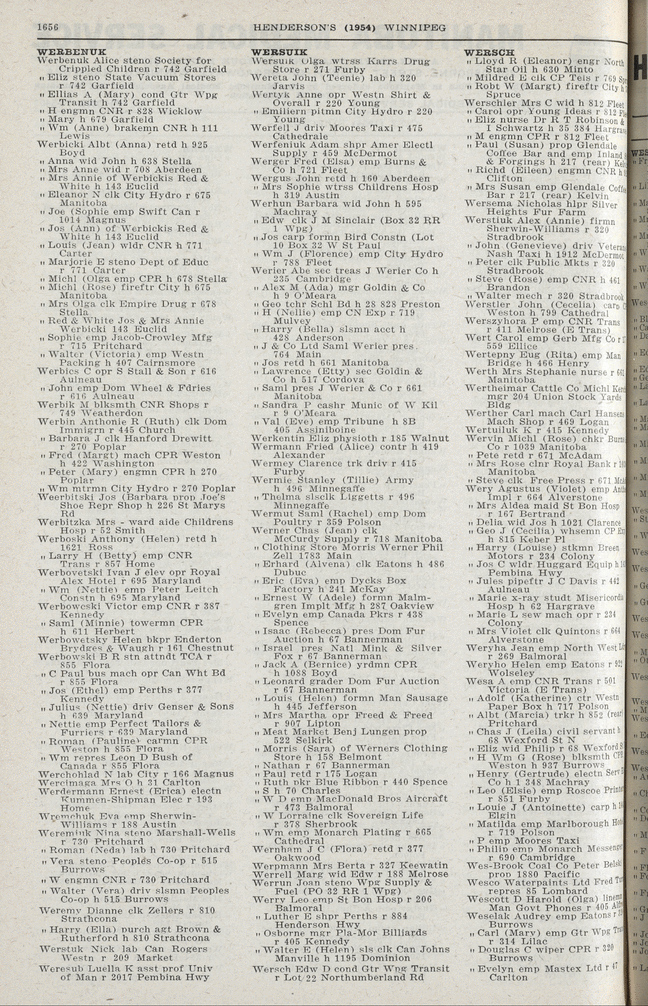 1656
HENDERSON'S (1954) WINNIPEG
WERBENUK
Werbenuk Alice steno Society for
Crippled Children r 742 Garfield
" Eliz steno State Vacuum Stores
r 742 Garfield
" Ellias A (Mary) cond Gtr Wpg
Transit h 742 Garfield
" H engmn CNR r 828 Wicklow
" Mary h 679 Garfield
" Wm (Anne) brakemn CNR h 111
Lewis
Werbicki Alb (Anna) retd h 925
Boyd
" Anna wid John h 638 Stella
" Mrs Anne wid r 708 Aberdeen
" Mrs Annie of Werbickis Red &
White h 143 Euclid
" Eleanor N clk City Hydro r 675
Manitoba
" Joe (Sophie emp Swift Can r
1014 Magnus
" Jos (Ann) of Werbickis Red &
White h 143 Euclid
" Louis (Jean) wldr CNR h 771
Carter
" Marjorie E steno Dept of Educ
r 771 Carter
" Michl (Olga emp CPR h 678 Stella
" Michl (Rose) fireftr City h 675
Manitoba
" Mrs Olga clk Empire Drug r 678
Stella
" Red & White Jos & Mrs Annie
Werbicki 143 Euclid
" Sophie emp Jacob-Crowley Mfg
r 715 Pritchard
" Walter (Victoria) emp Westn
Packing h 407 Cairnsmore
Werbics C opr S Stall & Son r 616
Aulneau
" John emp Dom Wheel & Fdries
r 616 Aulneau
Werbik M blksmth CNR Shops r
749 Weatherdon
Werbin Anthonie R (Ruth) clk Dom
Immigrn r 445 Church
" Barbara J clk Hanford Drewitt
r 270 Poplar
" Fred (Margt) mach CPR Weston
h 422 Washington
" Peter (Mary) engmn CPR h 270
Poplar
" Wm mtrmn City Hydro r 270 Poplar
Weerbitski Jos (Barbara prop Joe's
Shoe Repr Shop h 226 St Marys
Rd
Werbitzka Mrs - ward aide Childrens
Hosp r 52 Smith
Werboski Anthony (Helen) retd h
1621 Ross
" Larry H (Betty) emp CNR
Trans r 857 Home
Werbovetski Ivan J elev opr Royal
Alex Hotel r 695 Maryland
" Wm (Nettie) emp Peter Leitch
Constn h 695 Maryland
Werbowcski Victor emp CNR r 387
Kennedy
" Saml (Minnie) towermn CPR
h 611 Herbert
Werbowetsky Helen bkpr Enderton
Brydges & Waugh r 161 Chestnut
Werbowski B R stn attndt TCA r
855 Flora
" C Paul bus mach opr Can Wht Bd
r 855 Flora
" Jos (Ethel) emp Perths r 377
Kennedy
" Julius (Nettie) driv Genser & Sons
h 639 Maryland
" Nettie emp Perfect Tailors &
Furriers r 639 Maryland
" Roman (Pauline) carmn CPR
Weston h 855 Flora
" Wm repres Leon D Bush of
Canada r 855 Flora
Werchohlad N lab City r 166 Magnus
Wercimaga Mrs O h 31 Carlton
Werdermann Ernest (Erica) electn
Kummen-Shipman Elec r 193
Home
Wremchuk Eva emp Sherwin-
Williams r 188 Austin
Weremiuk Nina steno Marshall-Wells
r 730 Pritchard
" Roman (Neda) lab h 730 Pritchard
" Vera steno Peoples Co-op r 515
Burrows
" W engmn CNR r 730 Pritchard
" Walter (Vera) driv slsmn Peoples
Co-op h 515 Burrows
Weremy Dianne clk Zellers r 810
Strathcona
" Harry (Ella) purch agt Brown &
Rutherford h 810 Strathcona
Werstuk Nick lab Can Rogers
Westn r 209 Market
Weresub Luella K asst prof Univ
of Man r 2017 Pembina Hwy
WERSUIK
Wersuik Olga wtrss Karrs Drug
Store r 271 Furby
Wereta John (Teenie) lab h 320
Jarvis
Wertyk Anne opr Westn Shirt &
Overall r 220 Young
" Emiliern pitmn City Hydro r 220
Young
Werfell J driv Moores Taxi r 475
Cathedrale
Werfenium Adam shpr Amer Electl
Supply r 459 McDermot
Werger Fred (Elsa) emp Burns &
Co h 721 Fleet
Wergus John retd h 160 Aberdeen
" Mrs Sophie wtrss Childrens Hosp
h 319 Austin
Werhun Barbara wid John h 595
Machray
" Edw clk J M Sinclair (Box 32 RR
1 Wpg)
" Jos carp formn Bird Constn (Lot
10 Box 32 W St Paul
" Wm J (Florence) emp City Hydro
r 788 Fleet
Werier Abe sec treas J Werier Co h
235 Cambridge
" Alex M (Ada) mgr Goldin & Co
h 9 O'Meara
" Geo tchr Schl Bd h 28 828 Preston
" H (Nellie) emp CN Exp r 719
Mulvey
" Harry (Bella) slsmn acct h
428 Anderson
" J & Co Ltd Saml Werier pres
764 Main
" Jos retd h 661 Manitoba
" Lawrence (Etty) sec Goldin &
Co h 517 Cordova
" Saml pres J Werier & Co r 661
Manitoba
" Sandra P cashr Munic of W Kil
r 9 O'Meara
" Val (Eve) emp Tribune h 8B
405 Assiniboine
Werkentin Eliz physioth r 185 Walnut
Wermann Fried (Alice) contr h 419
Alexander
Wermey Clarence trk driv r 415
Furby
Wermie Stanley (Tillie) Army
h 496 Minnegaffe
" Thelma slsclk Liggetts r 496
Minnegaffe
Wermut Saml (Rachel) emp Dom
Poultry r 359 Polson
Werner Chas (Jean) clk
McCurdy Supply r 718 Manitoba
" Clothing Store Morris Werner Phil
Zell 1783 Main
" Erhard (Alvena) clk Eatons h 486
Dubuc
" Eric (Eva) emp Dycks Box
Factory h 241 McKay
" Ernest W (Adele) formn Malm-
gren Implt Mfg h 287 Oakview
" Evelyn emp Canada Pkrs r 438
Spence
" Isaac (Rebecca) pres Dom Fur
Auction h 67 Bannerman
" Israel pres Natl Mink & Silver
Fox r 67 Bannerman
" Jack A (Bernice) yrdmn CPR
h 1088 Boyd
" Leonard grader Dom Fur Auction
r 67 Bannerman
" Louis (Helen) formn Man Sausage
h 445 Jefferson
" Mrs Martha opr Freed & Freed
r 907 Lipton
" Meat Market Benj Lungen prop
522 Selkirk
" Morris (Sara) of Werners Clothing
Store h 158 Belmont
" Nathan r 67 Bannerman
" Paul retd r 175 Logan
" Ruth pkr Blue Ribbon r 440 Spence
" S h 70 Charles
" W D emp MacDonald Bros Aircraft
r 473 Balmoral
" W Lorraine clk Sovereign Life
r 378 Sherbrook
" Wm emp Monarch Plating r 665
Cathedral
Wernham J C (Flora) retd r 377
Oakwood
Werpmann Mrs Berta r 327 Keewatin
Werrell Marg wid Edw r 188 Melrose
Werrun Joan steno Wpg Supply &
Fuel (PO 32 RR 1 Wpg)
Werry Leo emp St Bon Hosp r 206
Balmoral
" Luther E shpr Perths r 884
Henderson Hwy
" Osborne mgr Pla-Mor Billiards
r 405 Kennedy
" Walter E (Helen) sls clk Can Johns
Manville h 1195 Dominion
Wersch Edw D cond Gtr Wpg Transit
r Lot 22 Northumberland Rd
WERSCH
" Lloyd R (Eleanor) engr North
Star Oil h 630 Minto
" Mildred E clk CP Teis r 769
" Robt W (Margt) fireftr City h
Spruce
Werschler Mrs C wid h 812 Fleet
" Carol opr Young Ideas r 812
" Eliz nurse Dr R T Robinson &
I Schwartz h 35 384 Hargrave
" M engmn CPR r 812 Fleet
" Paul (Susan) prop Glendale
Coffee Bar and emp Inland
& Forgings h 217 (rear)
" Richd (Eileen) engmn CNR h
Clifton
" Mrs Susan emp Glendale Coffee
Bar r 217 (rear) Kelvin
Wersema Nicholas hlpr Silver
Heights Fur Farm
Werstiuk Alex (Annie) firmn
Sherwin-Williams r 320
Stradbrook
" John (Genevieve) driv
Nash Taxi h 1912 McDermot
" Peter clk Public Mkts r 320
Stradbrook
" Steve (Rose) emp CNR h 461
Brandon
" Walter mech r 320 Stradbrook
Werstler John (Cecelia)
Weston h 799 Cathedral
Werszyhora P emp CNR Trans
r 411 Melrose (E Trans)
Wert Carol emp Gerb Mfg Co r
559 Ellice
Wertepny Eug (Rita) emp Man
Bridge h 466 Henry
Werth Mrs Stephanie nurse r 661
Manitoba
Wertheimar Cattle Co Michl
mgr 204 Union Stock Yards
Bldg
Werther Carl mach Carl Hansens
Mach Shop r 469 Logan
Wertuiluk K r 415 Kennedy
Wervin Michl (Rose) chkr Burns
Co r 1039 Manitoba
" Pete retd r 671 McAdam
" Mrs Rose clnr Royal Bank r
Manitoba
" Steve clk Free Press r 671
Wery Agustus (Violet) emp
Impl r 664 Alverstone
" Mrs Aldea maid St Bon Hosp
r 167 Bertrand
" Delia wid Jos h 1021 Clarence
" Geo J (Cecilia) whsemn CP
h 815 Keber Pl
" Harry (Louise) stkmn Breen
Motors r 234 Colony
" Jos C wldr Huggard Equip h
Pembina Hwy
" Jules pipeftr J C Davis r 442
Aulneau
" Marie x-ray studt Misericordia
Hosp h 62 Hargrave
" Marie L sew mach opr r 234
Colony
" Mrs Violet clk Quintons r 664
Alverstone
Weryha Jean emp North West
r 269 Balmoral
Weryho Helen emp Eatons r 925
Wolseley
Wesa A emp CNR Trans r 501
Victoria (E Trans)
" Adolf (Katherine) ctr Westn
Paper Box h 717 Polson
" Albt (Marcia) trkr h 852 (rear)
Pritchard
" Chas J (Leila) civil servant h
68 Wexford St N
" Eliz wid Philip r 68 Wexford
" H Wm G (Rose) blksmth
Weston r 937 Burrows
" Henry (Gertrude) electn
Co h 1 348 Machray
" Leo (Elsie) emp Roscoe
r 851 Furby
" Louie J (Antoinette) carp h
Elgin
" Matilda emp Marlborough
r 719 Polson
" P emp Moores Taxi
" Philip emp Monarch
r 690 Cambridge
Wes-Brook Coal Co Peter
prop 1880 Pacific
Wesco Waterpaints Ltd Fred
repres 85 Lombard
Wescott D Harold (Olga)
Man Govt Phones r 405
Weselak Audrey emp Eatons r
Burrows
" Carl (Mary) emp Gtr Wpg
r 314 Lilac
" Douglas C wiper CPR r 320
Burrows
" Evelyn emp Mastex Ltd r 47
Carlton